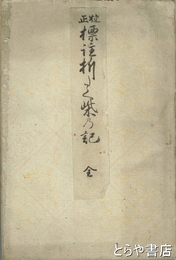 校正
標註折たく柴の記 全
とらや書店